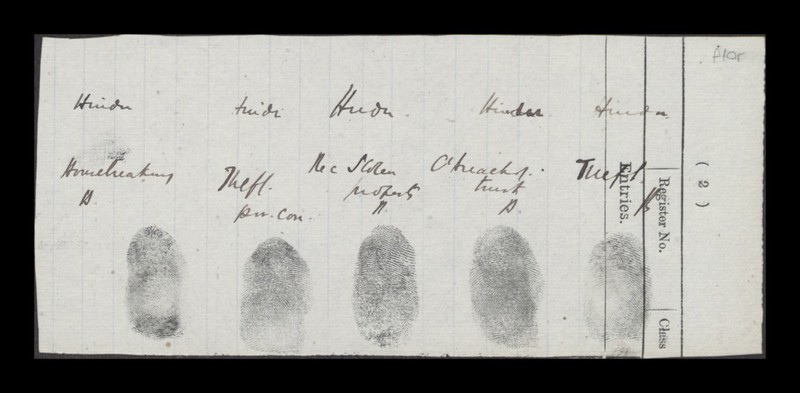 Hindu Hindi Hindu Hindu Hindu
Housebreaking Theft Rec Stolen C breach of Theft
property trust
pv. con.
Entries.
Register No.
Class
( 2 )